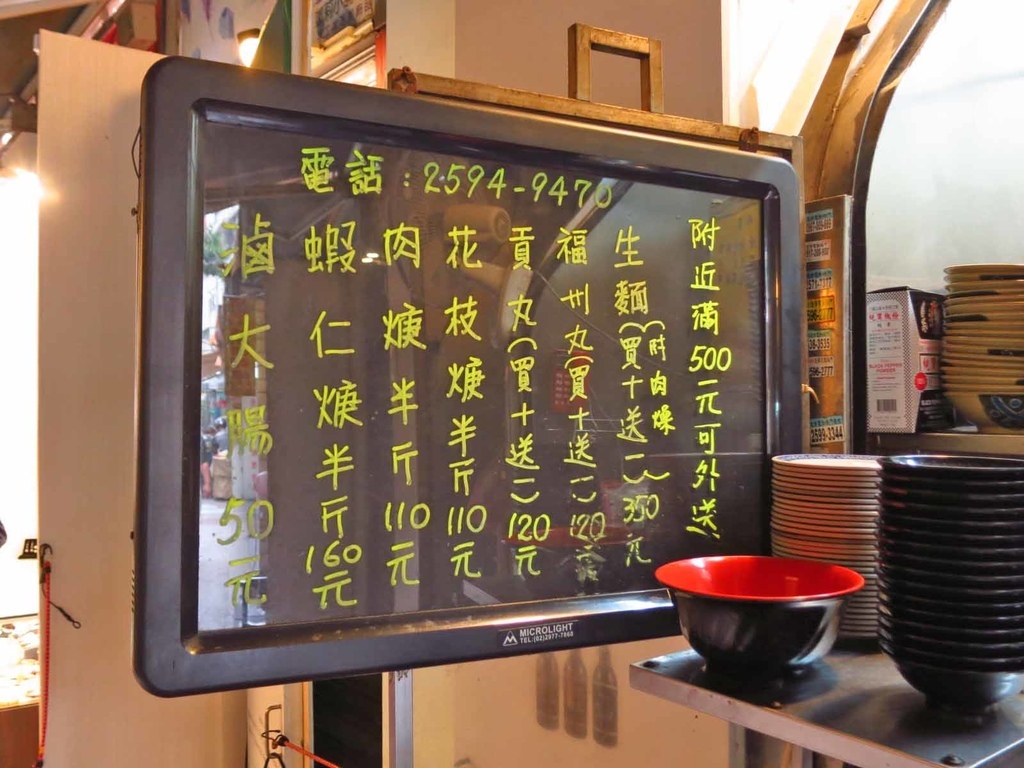 電話:2594-9470
附近滿500元可外送
生麵(買十送一)(附肉燥)350元
福州丸(買十送一)120元
貢丸(買十送一)120元
花枝焿半斤110元
肉焿半斤110元
蝦仁焿半斤160元
滷大腸50元
MICROLIGHT
TEL:(02)2977-7068
2599-3344